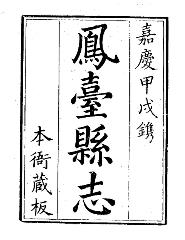 嘉慶甲戌鐫
鳳臺縣志
本衙藏板